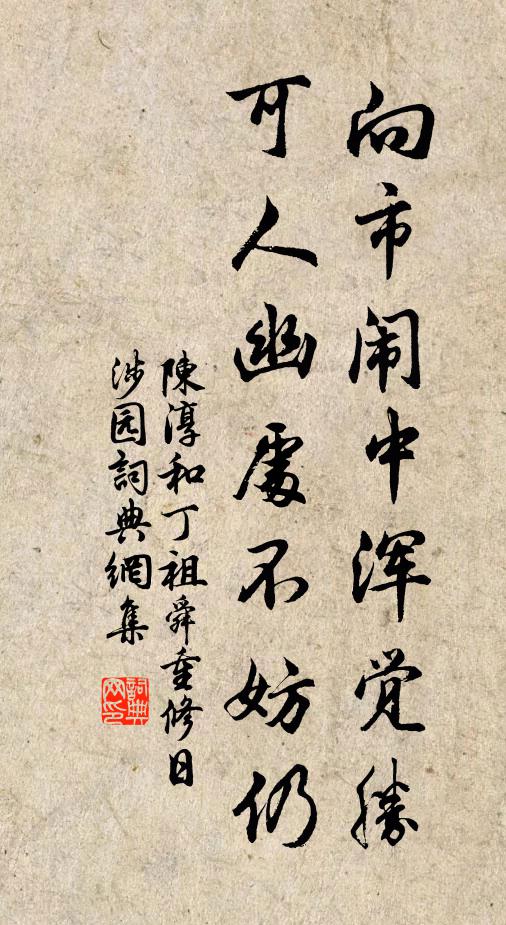 向市闹中浑觉勝
可人幽處不妨仍
陳淳和丁祖舜重修日
涉园詞典網集
詞典
网印